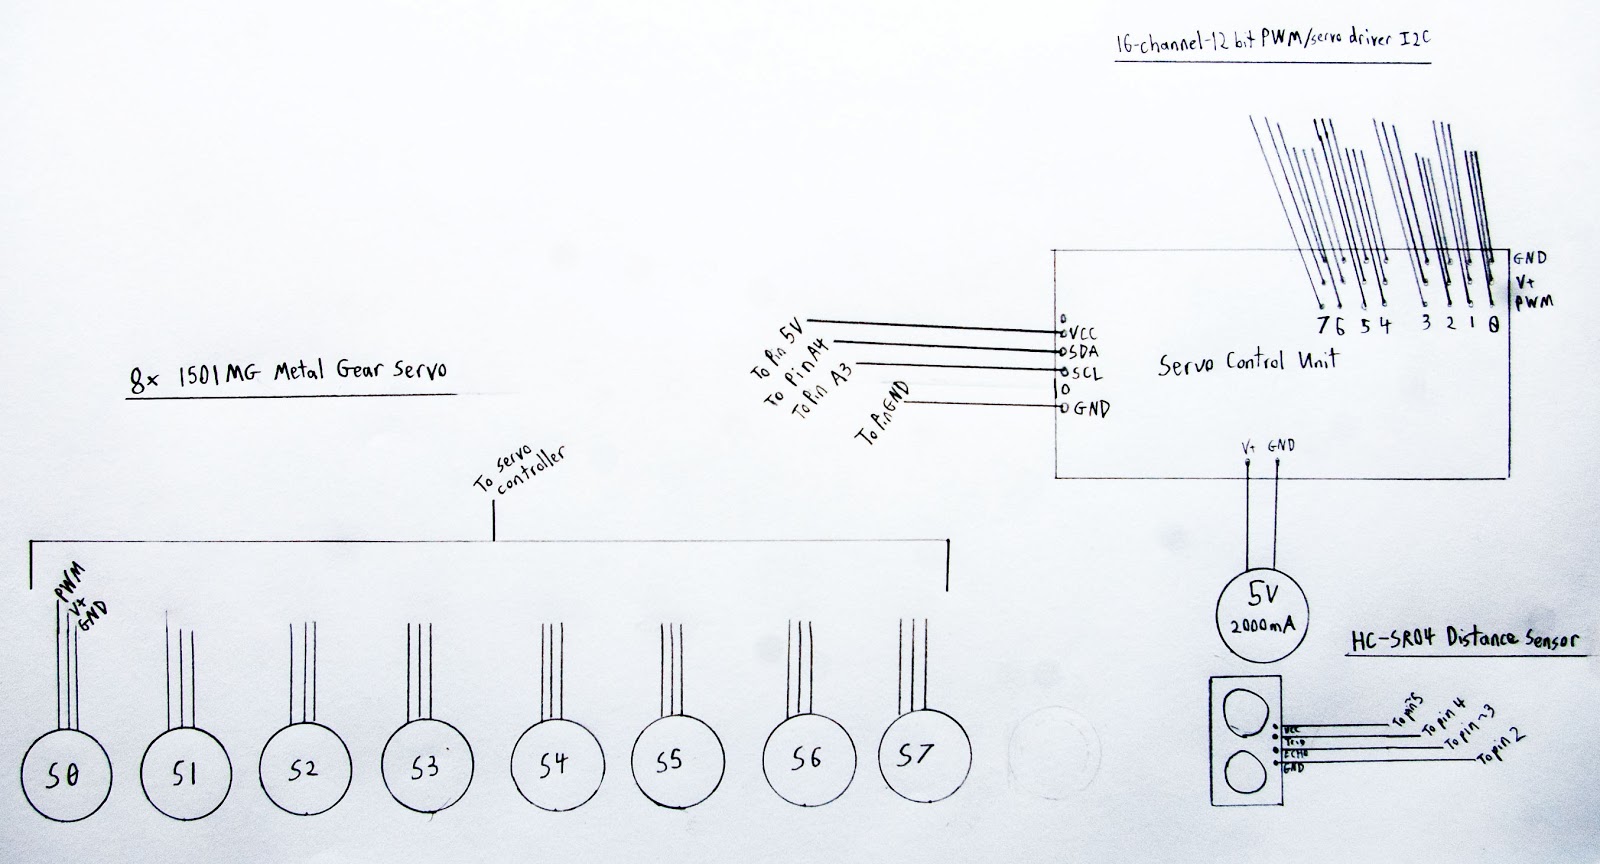 16-channel-12 bit PWM/servo driver I2C
GND
V+
PWM
7 6 5 4 3 2 1 0
To Pin 5V
VCC
To Pin A4
SDA
To Pin A3
SCL
To Pin GND
GND
Servo Control Unit
V+ GND
8x 1501MG Metal Gear Servo
To servo
controller
5V
2000mA
HC-SR04 Distance Sensor
PWM
V+
GND
S0 S1 S2 S3 S4 S5 S6 S7
VCC To pin~5
Trig To pin 4
ECHO To pin ~3
GND To pin 2